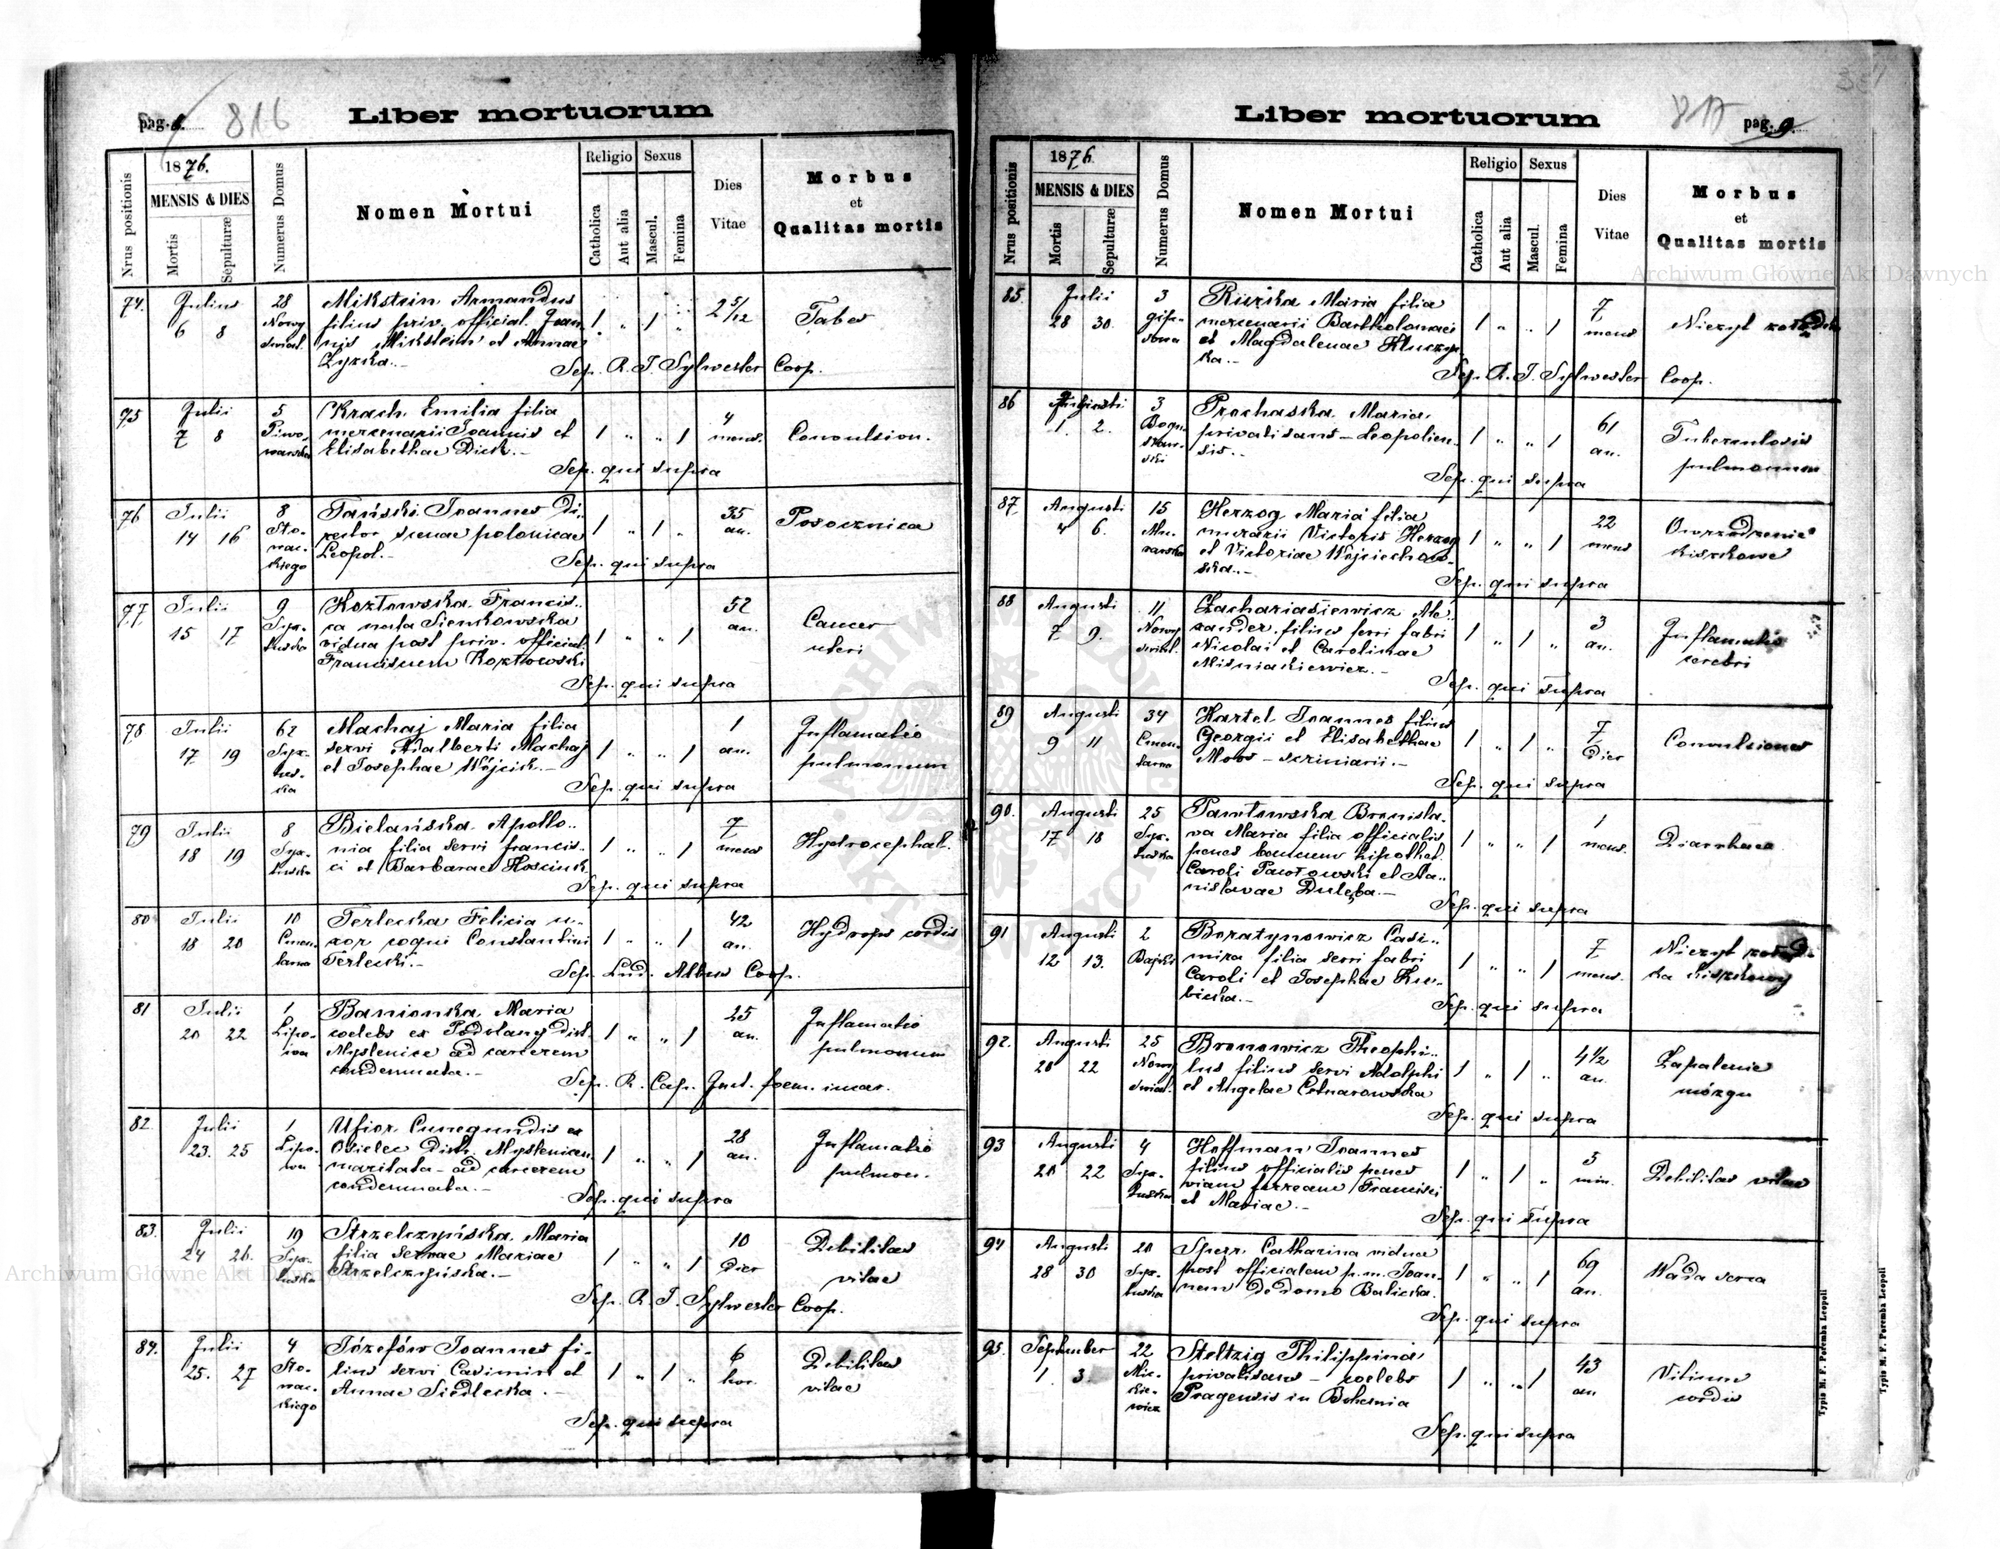 pag. 8. 816
Liber mortuorum
Nrus positionis
1876.
MENSIS & DIES
Mortis
Sepulturæ
Numerus Domus
Nomen Mortui
Religio
Catholica
Aut alia
Sexus
Mascul.
Femina
Dies
Vitae
Morbus
et
Qualitas mortis
74. Julius 28 Mikstein Armandus 2 5/12
6 8 Nowy filius priv. official. Joan- 1 " 1 " Tabes
świat. nis Mikstein et Annae
Zyzka.-
Sep. R. J. Sylwester Coop.
75 Julii 5 Krach Emilia filia 4
7 8 Piwo- mercenarii Joannis et 1 " " 1 mens. Convulsion.
warska Elisabethae Dick.-
Sep. qui supra
76 Julii 8 Tański Joannes Di- 35
14 16 Sło- rector scenae polonicae 1 " 1 " an. Posocznica
wac- Leopol.-
kiego
Sep. qui supra
77 Julii 9 Kozłowska Francis- 52
15 17 Syx- ca nata Sienkowska an. Cancer
tuska vidua post priv. official. 1 " " 1 uteri
Franciscum Kozłowski
Sep. qui supra
78 Julii 62 Machaj Maria filia 1 Inflamatio
17 19 Syx- servi Adalberti Machaj 1 " " 1 an. pulmonum
tus- et Josephae Wójcik.-
ka
Sep. qui supra
79 Julii 8 Bielańska Apollo- 7
18 19 Syx- nia filia servi francis- 1 " " 1 mens Hydrocephal.
tuska ci et Barbarae Kościuk
Sep. qui supra
80 Julii 10 Terlecka Felicia u- 42
18 20 Cmen- xor coqui Constantini 1 " " 1 an. Hydrops cordis
tarna Terlecki.-
Sep. Lud. Albus Coop.
81 Julii 1 Banionka Maria 25 Inflamatio
20 22 Lipo- coelebs ex Podolany dist. 1 " " 1 an. pulmonum
wa Myslenice ad carcerem
condemnata.-
Sep. R. Cap. Inst. foem. incar.
82 Julii 1 Ufior Cunegundis ex 28 Inflamatio
23. 25 Lipo- Osielec Dist. Myslenicen. 1 " " 1 an. pulmon.
wa maritata - ad carcerem
condemnata.-
Sep. qui supra
83. Julii 19 Strzelczyńska Maria 10 Debilitas
24 26. Syx- filia servae Mariae 1 " " 1 Dier vitae
tuska Strzelczyńska.-
Sep. R. J. Sylwester Coop.
84. Julii 4 Józefów Joannes fi- 6 Debilitas
25. 27 Sło- lius servi Casimiri et 1 " 1 " hor. vitae
wac- Annae Siedlecka.-
kiego
Sep. qui supra
817 pag. 9.
Liber mortuorum
Nrus positionis
1876.
MENSIS & DIES
Mortis
Sepulturæ
Numerus Domus
Nomen Mortui
Religio
Catholica
Aut alia
Sexus
Mascul.
Femina
Dies
Vitae
Morbus
et
Qualitas mortis
85. Julii 3 Ruzika Maria filia 7
28 30. mercenarii Bartholomaei 1 " " 1 mens Nieżyt
et Magdalenae Kluczyn-
ska.-
Sep. R. J. Sylwester Coop.
86 Augusti 3 Prochaska Maria 61 Tuberculosis
1. 2. privatisans - Leopolien- 1 " " 1 an. pulmonum
ski sis.-
Sep. qui supra
87 Augusti 15 Herzog Maria filia 22 Owrzodzenie
6. murarii Victoris Herzog 1 " " 1 mens kiszkowe
et Victoriae Wojciechow-
ska.-
Sep. qui supra
88 Augusti 11 Zachariasiewicz Ale- 3 Inflamatio
7 9. Nowy xander filius ferri fabri 1 " 1 " an. cerebri
świat. Nicolai et Carolinae
Miśniakiewicz.-
Sep. qui supra
89 Augusti 34 Hartel Joannes filius 7
9 11 Cmen- Georgii et Elisabethae 1 " 1 " Dier Convulsiones
tarna Moos - scriniarii.-
Sep. qui supra
90. Augusti 25 Pawłowska Bronisła- 1
17 18 Syx- va Maria filia officialis 1 " " 1 mens. Diarrhaea
tuska penes bancum hipothec.
Caroli Pawłowski et Sta-
nislavae Dulęba.-
Sep. qui supra
91 Augusti 2 Boratynowicz Casi- 7 Nieżyt
12 13. Bajki mira filia ferri fabri 1 " " 1 mens. kiszkowy
Caroli et Josephae Ku-
bicka.-
Sep. qui supra
92. Augusti 25 Bronowicz Theophi- 4 1/2 Zapalenie
20 22 Nowy lus filius servi Adolphi 1 " 1 " an. mózgu
świat. et Angelae Cetnarowska
Sep. qui supra
93 Augusti 4 Hoffman Joannes 5
20 22 Syx- filius officialis penes 1 " 1 " min. Debilitas vitae
tuska viam ferream Francisci
et Mariae.-
Sep. qui supra
94 Augusti 20 Sperr Catharina vidua 69
28 30 Syx- post officialem p. m. Joan- 1 " " 1 an. Wada serca
tuska nem De domo Balicka.
Sep. qui supra
95. September 22 Steltzig Philippina 43 Vitium
1. 3. Mic- privatisans - coelebs 1 " " 1 an cordis
kie- Pragensis in Bohemia
wicz
Sep. qui supra
Typis M. F. Poremba Leopoli
Typis M. F. Poremba Leopoli
Archiwum Główne Akt Dawnych
Archiwum Główne Akt Dawnych